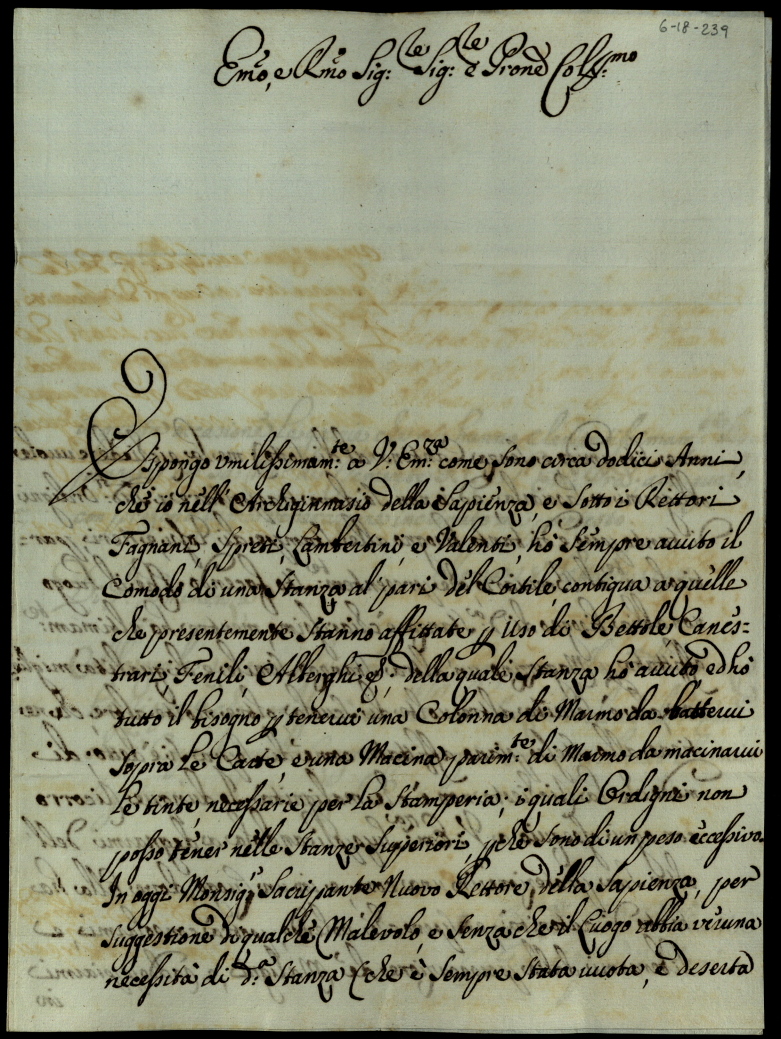 6-18-239
Emo, e Rmo Sig:re Sig:re e Prone Coll:mo
Espongo vmilissimam:te a V: Em:za come sono circa dodici Anni,
che io nell' Archiginnasio della Sapienza, e sotto i Rettori
Fagnani, Spreti, Lambertini, e Valenti, hò sempre auuto il
Comodo di una Stanza al pari del Cortile, contigua a quelle
che presentemente stanno affittate p Uso di Bettole, Canes-
trari, Fenili, Alberghi &: della quale Stanza hò auuto, ed hò
tutto il bisogno p tenerui una Colonna di Marmo da batterui
sopra le Carte, e una Macina parim:te di Marmo da macinarui
le tinte, necessarie per la Stamperia; i quali Ordigni non
posso tener nelle Stanze Superiori, p che sono di un peso eccessiuo.
In oggi Monsig:r Sacripante Nuovo Rettore della Sapienza, per
suggestione di qualche Malevolo, e senza che il Luogo abbia veruna
necessità di d:a Stanza (che è sempre stata vuota, e deserta